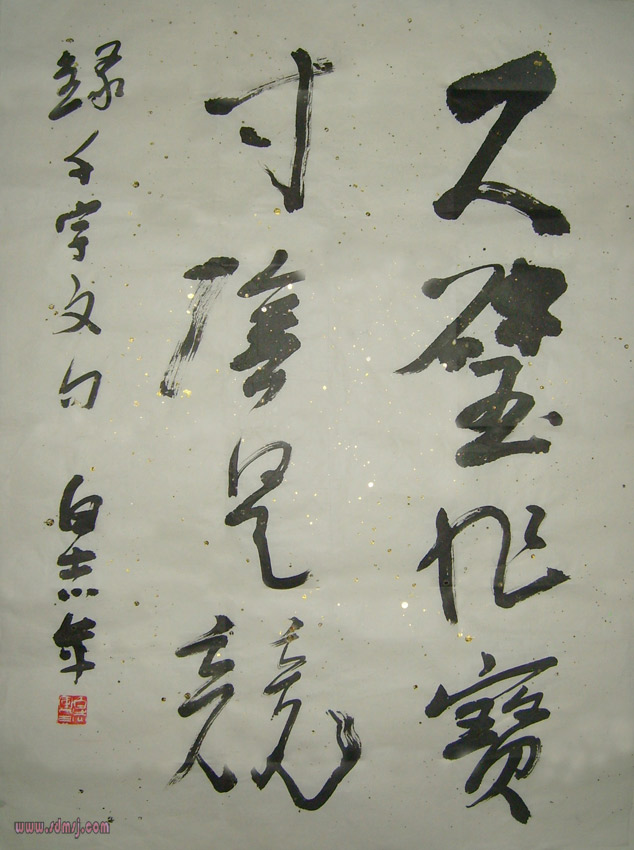 尺璧非寶
寸陰是競
錄千字文句 白志年
www.sdmsj.com